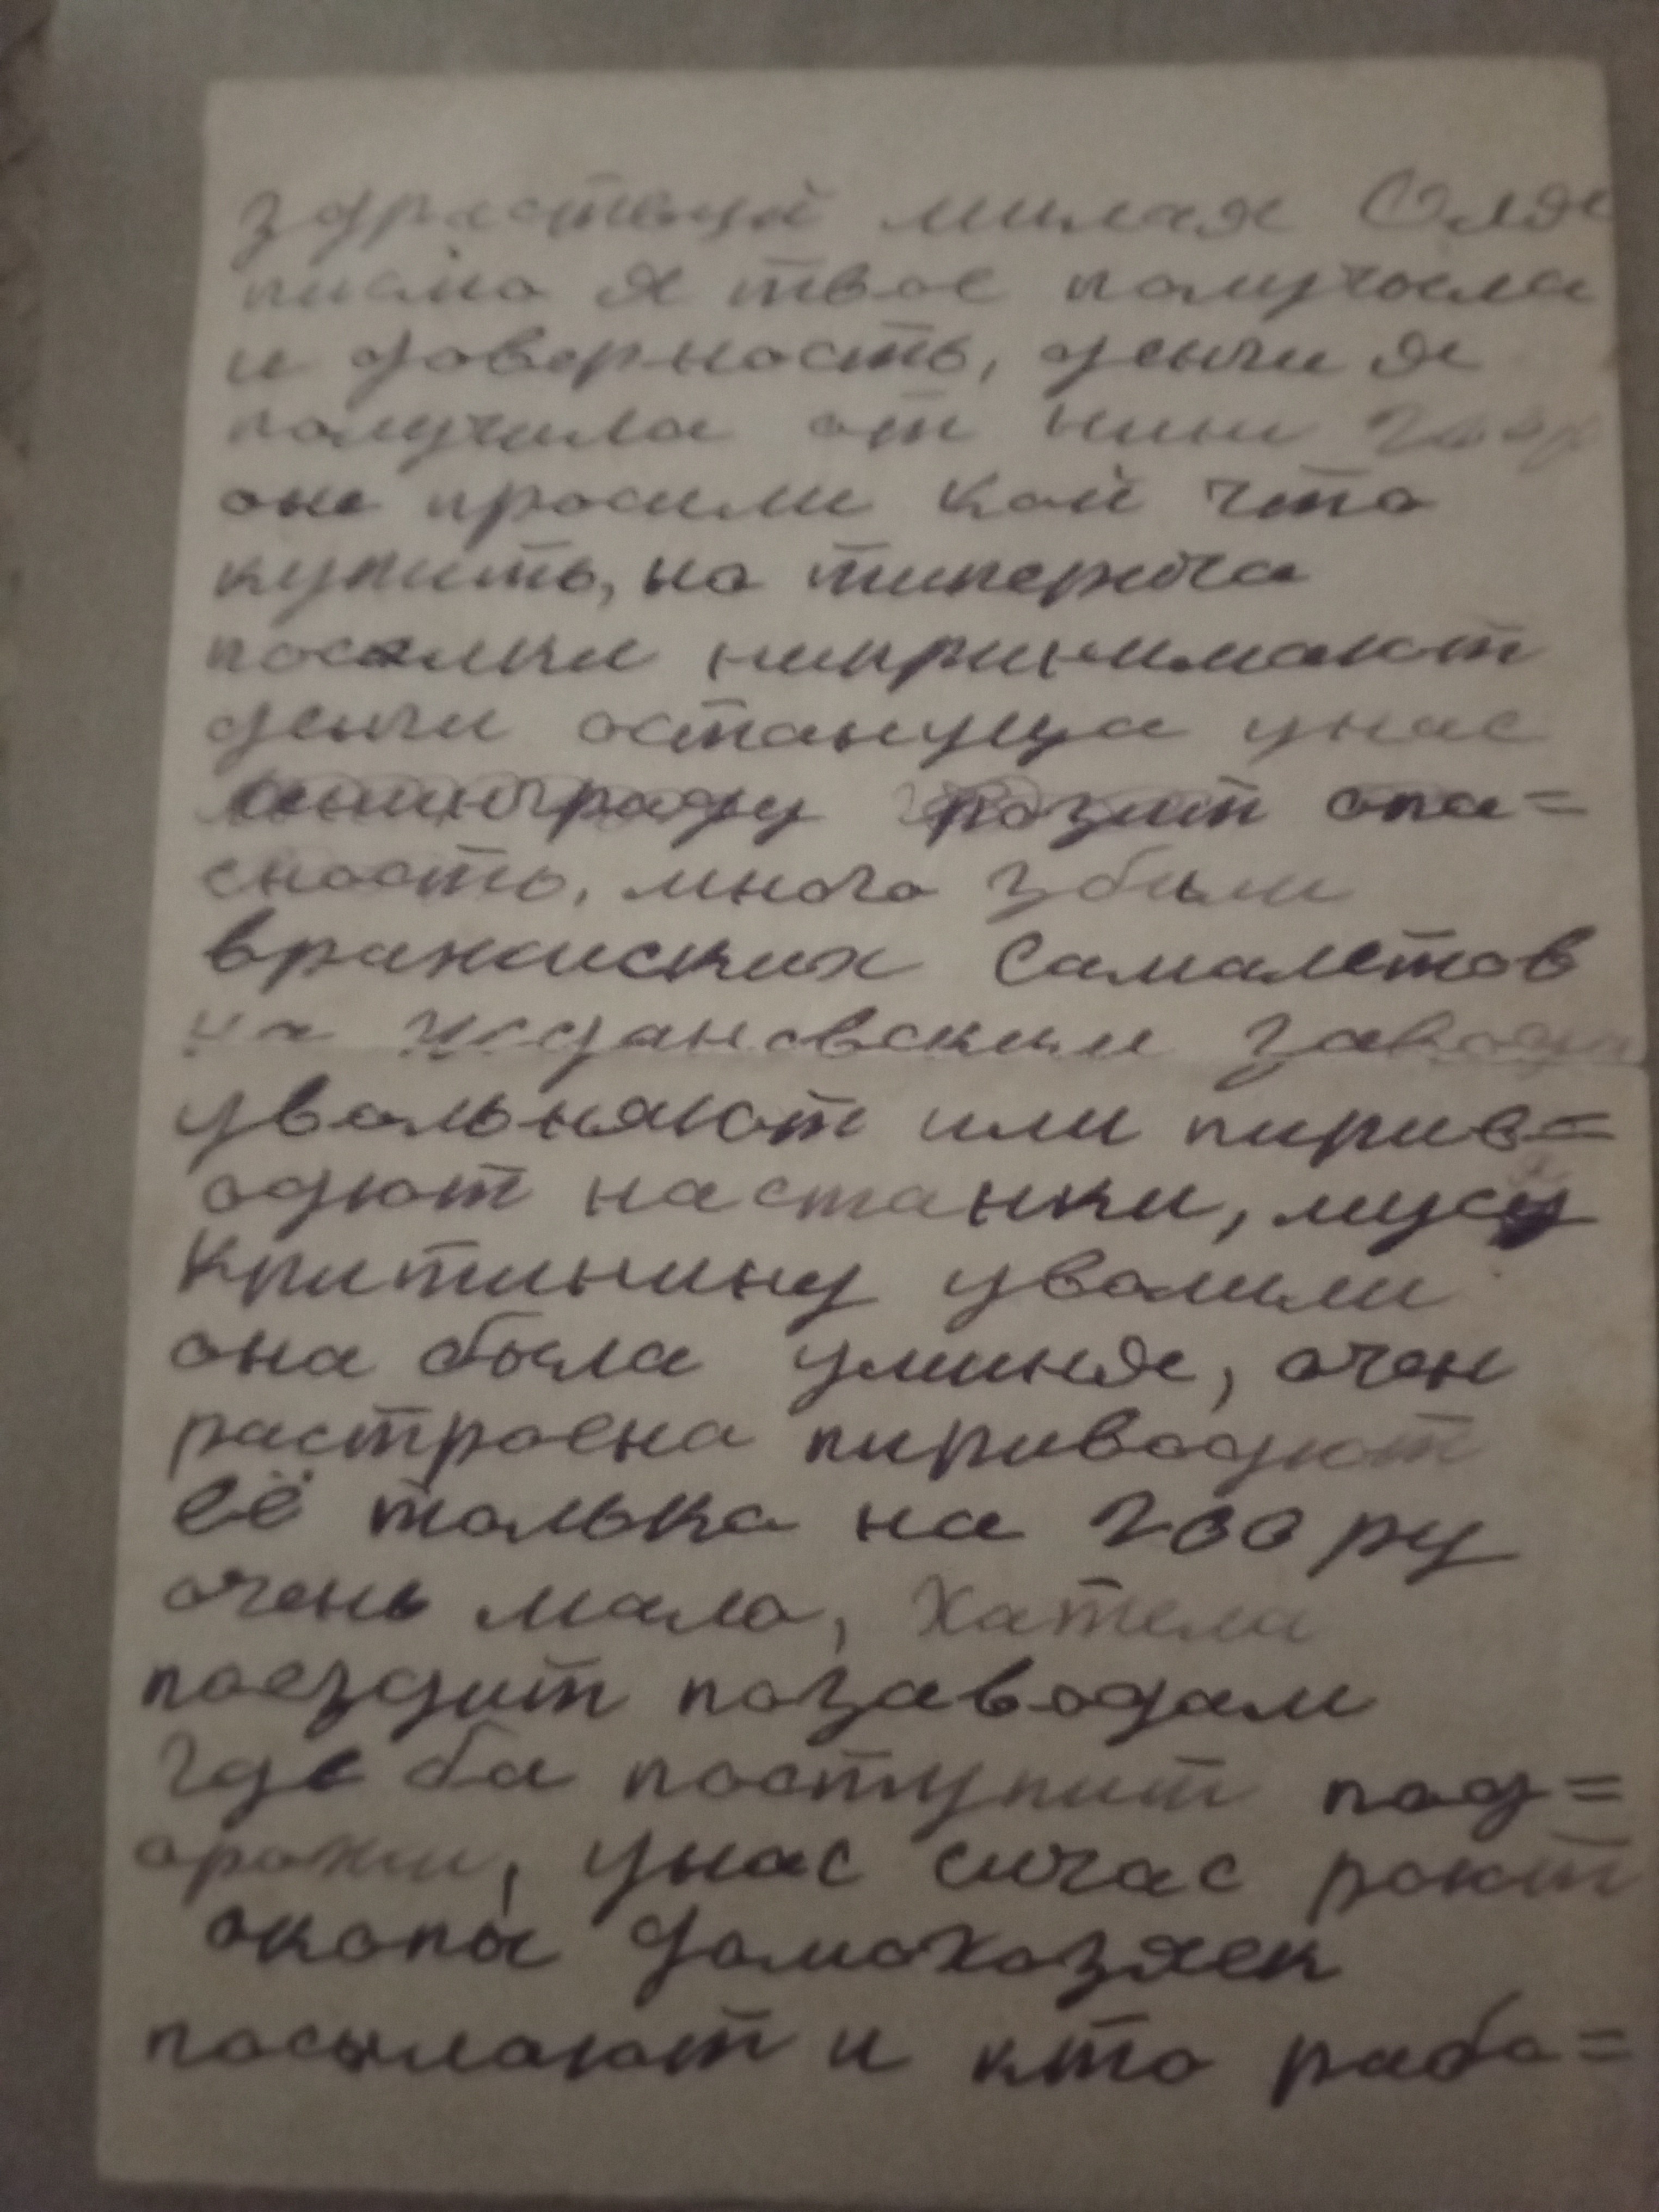 здраствуй милая Оля
писмо я твое получила
и доверность, денги я
получила от нини 200р
оне просили кой что
купить, но типерича
посылки нипринимают
денги остануца унас
ленинграду грозит опа=
сность, много збили
вражииских самалетов
на ждановским заводи
увальняют или пирив=
одют настанки, мусу
Критинину уволили
она была уминя, очен
растроена пириводют
её толька на 200 ру
очень мало, хатела
поездит позаводам
где ба поступит под=
орожи, унас сичас роют
окопы домохозяек
посылают и кто рабо=